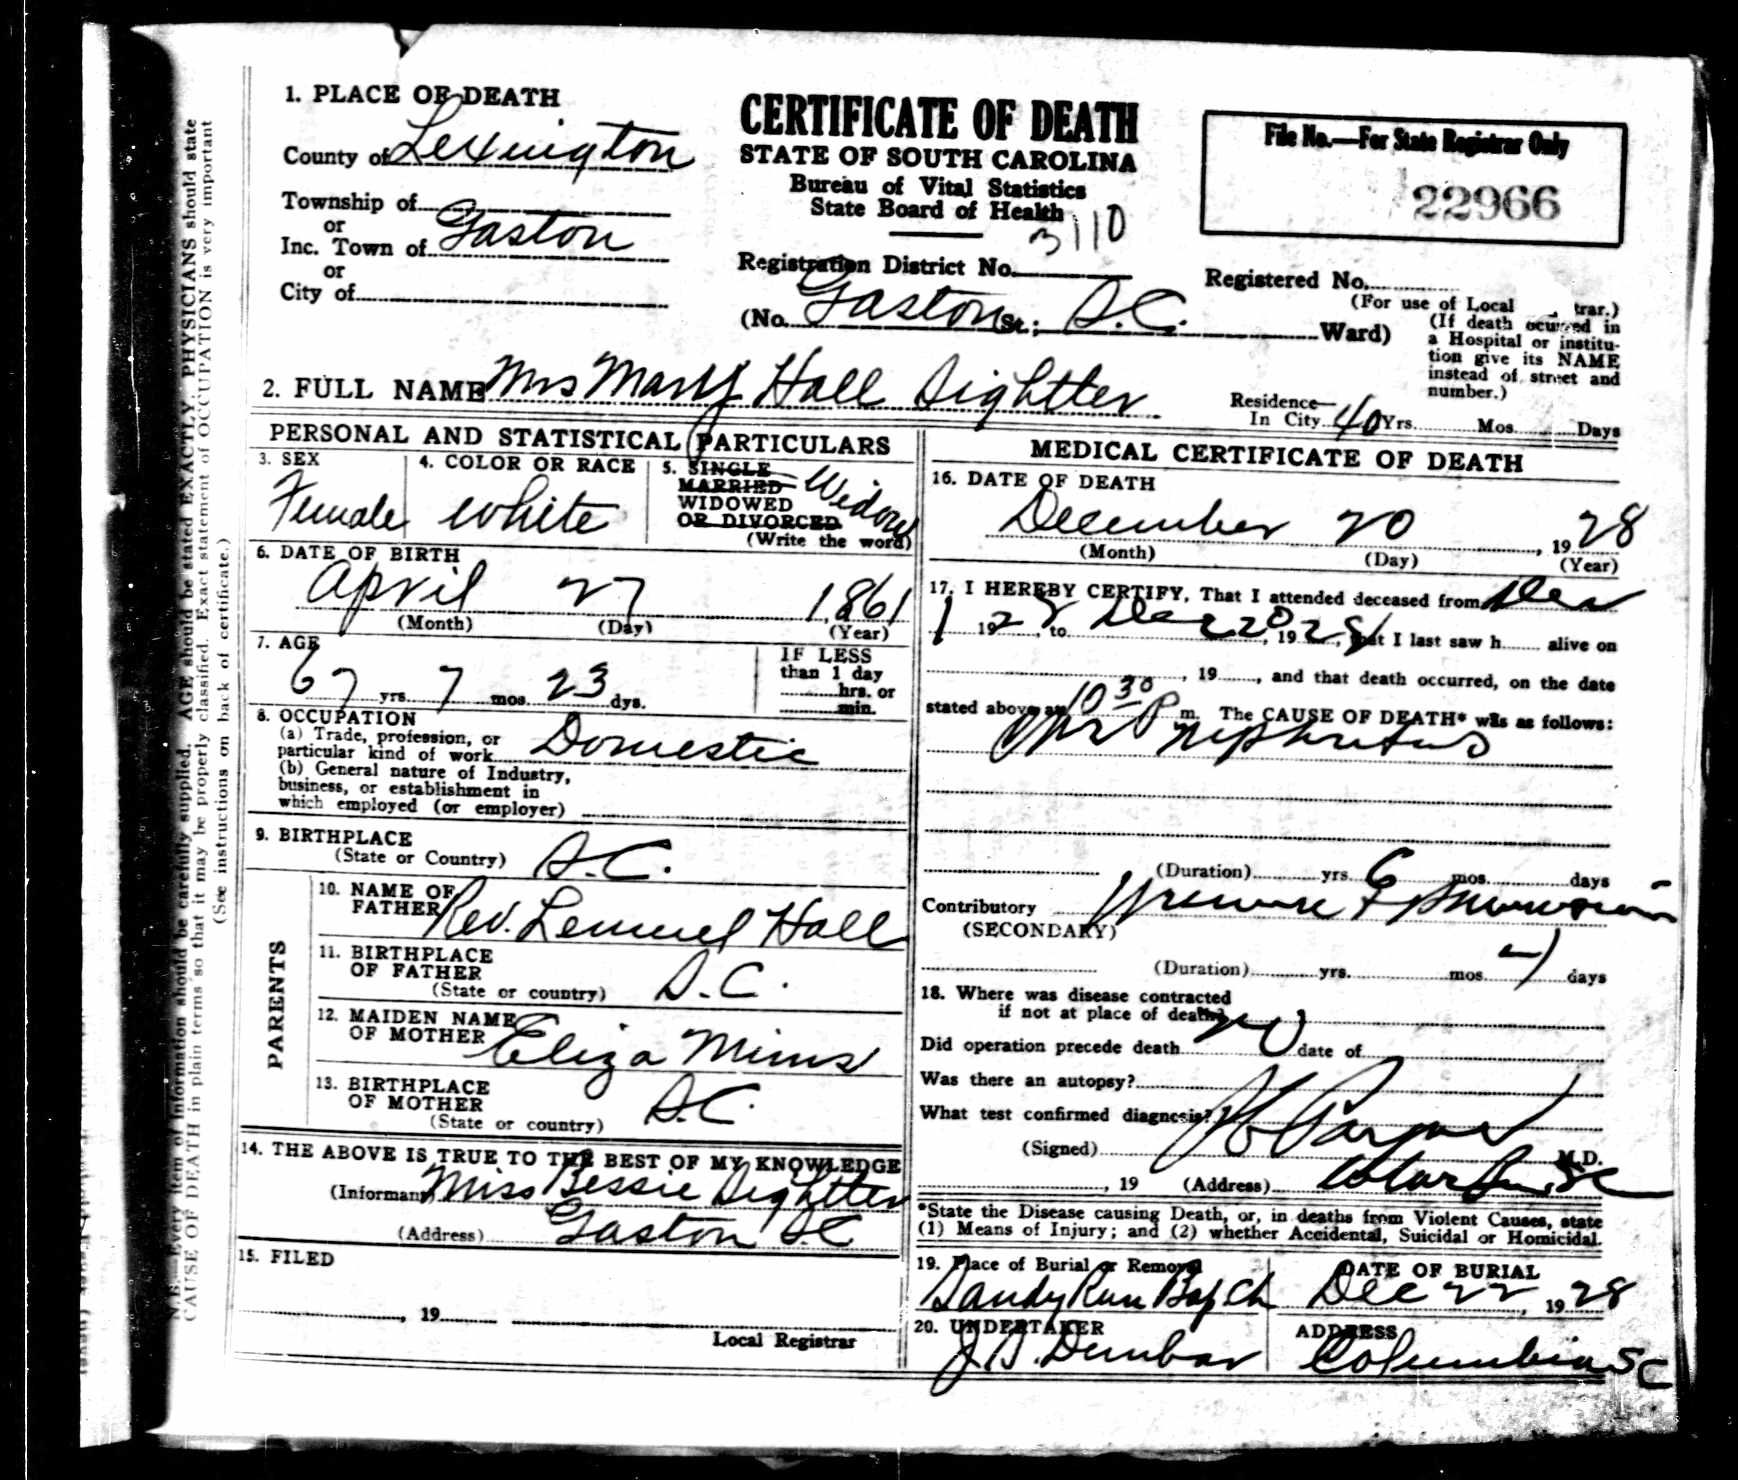 1. PLACE OF DEATH
County of Lexington
Township of
or
Inc. Town of Gaston
or
City of
CERTIFICATE OF DEATH
STATE OF SOUTH CAROLINA
Bureau of Vital Statistics
State Board of Health
Registration District No. 3110
(No. Gaston St.; S.C. Ward)
File No.—For State Registrar Only
22966
Registered No.
(For use of Local trar.)
(If death ocurred in
a Hospital or institu-
tion give its NAME
instead of street and
number.)
2. FULL NAME Mrs Mary Hall Sightler
Residence—
In City 40 Yrs. Mos. Days
PERSONAL AND STATISTICAL PARTICULARS
3. SEX
Female
4. COLOR OR RACE
White
5. SINGLE
MARRIED
WIDOWED
OR DIVORCED
Widow
(Write the word)
6. DATE OF BIRTH
April 27 1861
(Month) (Day) (Year)
7. AGE
67 yrs. 7 mos. 23 dys.
IF LESS
than 1 day
hrs. or
min.
8. OCCUPATION
(a) Trade, profession, or
particular kind of work Domestic
(b) General nature of Industry,
business, or establishment in
which employed (or employer)
9. BIRTHPLACE
(State or Country) S.C.
PARENTS
10. NAME OF
FATHER Rev. Lemuel Hall
11. BIRTHPLACE
OF FATHER
(State or country) S.C.
12. MAIDEN NAME
OF MOTHER Eliza Mims
13. BIRTHPLACE
OF MOTHER
(State or country) S.C.
14. THE ABOVE IS TRUE TO THE BEST OF MY KNOWLEDGE
(Informant) Miss Bessie Sightler
(Address) Gaston S.C
15. FILED
, 19
Local Registrar
MEDICAL CERTIFICATE OF DEATH
16. DATE OF DEATH
December 20, 1928
(Month) (Day) (Year)
17. I HEREBY CERTIFY, That I attended deceased from Dec
1 1928, to Dec 20, 1928, that I last saw h alive on
, 19, and that death occurred, on the date
stated above at 10 30 P m. The CAUSE OF DEATH* was as follows:
(Duration) yrs. 6 mos. days
Contributory
(SECONDARY)
(Duration) yrs. mos. days
18. Where was disease contracted
if not at place of death?
Did operation precede death No date of
Was there an autopsy?
What test confirmed diagnosis?
(Signed) M.D.
, 19 (Address) SC
*State the Disease causing Death, or, in deaths from Violent Causes, state
(1) Means of Injury; and (2) whether Accidental, Suicidal or Homicidal.
19. Place of Burial or Removal
Sandy Run Bap Ch
DATE OF BURIAL
Dec 22, 1928
20. UNDERTAKER
J.B. Dunbar
ADDRESS
Columbia SC
N.B.—Every item of information should be carefully supplied. AGE should be stated EXACTLY. PHYSICIANS should state
CAUSE OF DEATH in plain terms so that it may be properly classified. Exact statement of OCCUPATION is very important
(See instructions on back of certificate.)